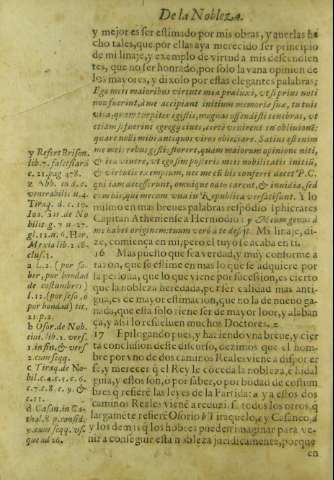 De la Nobleza.
y mejor es ser estimado por mis obras, y auerlas he
cho tales, que por ellas aya merecido ser principio
de mi linaje, y exemplo de virtud a mis descendien
tes, que no ser honrado, por solo la vana opinion de
los mayores, y dixolo por estas elegantes palabras:
Ego meis maioribus virtute mea præluxi, vt si prius noti
non fuerint, a me accipiant initium memoriæ suæ, tu tuis
vita, quam turpiter egisti, magnas offendisti tenebras, vt
etiam si fuerint egregij ciues, certè venirent in obliuionẽ:
quare noli mihi antiquos viros obiectare. Satius est enim
me meis rebus gestis florere, quam maiorum opinione niti,
& ita viuere, vt ego sim posteris meis nobilitatis initiũ,
& virtutis exemplum, nec me
qui iam decesserunt, omnique odio carent, & inuidia, sed
Y lo
mismo en mas breues palabras respõdio Iphicrates
Capitan Atheniense a Hermodio: y Meum genus a
me habet originem: tuum verò a te desijt. Mi linaje, di-
ze, comiença en mi, pero el tuyo se acaba en ti.
16 Mas puesto que sea verdad, y muy conforme a
razon, que se estime en mas lo que se adquiere por
la persona, que lo que viene por sucession, es cierto
que la nobleza heredada, por ser calidad mas anti-
gua, es de mayor estimacion, que no la de nueuo ga-
nado, que esta solo tiene ser de mayor loor, y alaban
ça, y assi lo resueluen muchos Doctores.
17 Epilogando pues, y haziendo vna breue, y cier
ta conclusion deste discurso, dezimos que el hom-
bre por vno de dos caminos Reales viene a disponer
se, y merecer q̃ el Rey le cõceda la nobleza, e hidal
guia, y estos son, o por saber, o por bodad de costum
bres q̃ refiere las leyes de la Partida: a y a estos dos
caminos Reales viene a reduzirse todos los otros, q̃
largamete refiere Osorio b Tiraquelo, c y Casaneo, d
y los demas q̃ los hõbres pueden imaginar para ve-
nir a conseguir esta nobleza juridicamente, porque
en
y Refert Brison.
lib.7.
c.21. pag 478.
z Abb. in d.c.
venerabilis de
Tiraq. d. c. 19.
Ioã.
bilit g.7 n.27.
lib.
a l.2. (por sa-
ber, por bondad
de costumbres)
l.12. (por seso, o
por bondad) tit.
21.p.2.
b Osor. de Nob.
lib.2. vers.
c Tiraq. de No-
bil.c.4.c.5.c.6.
c.7.c.8.c.9. &
c.11.
d Casan. in Ca-